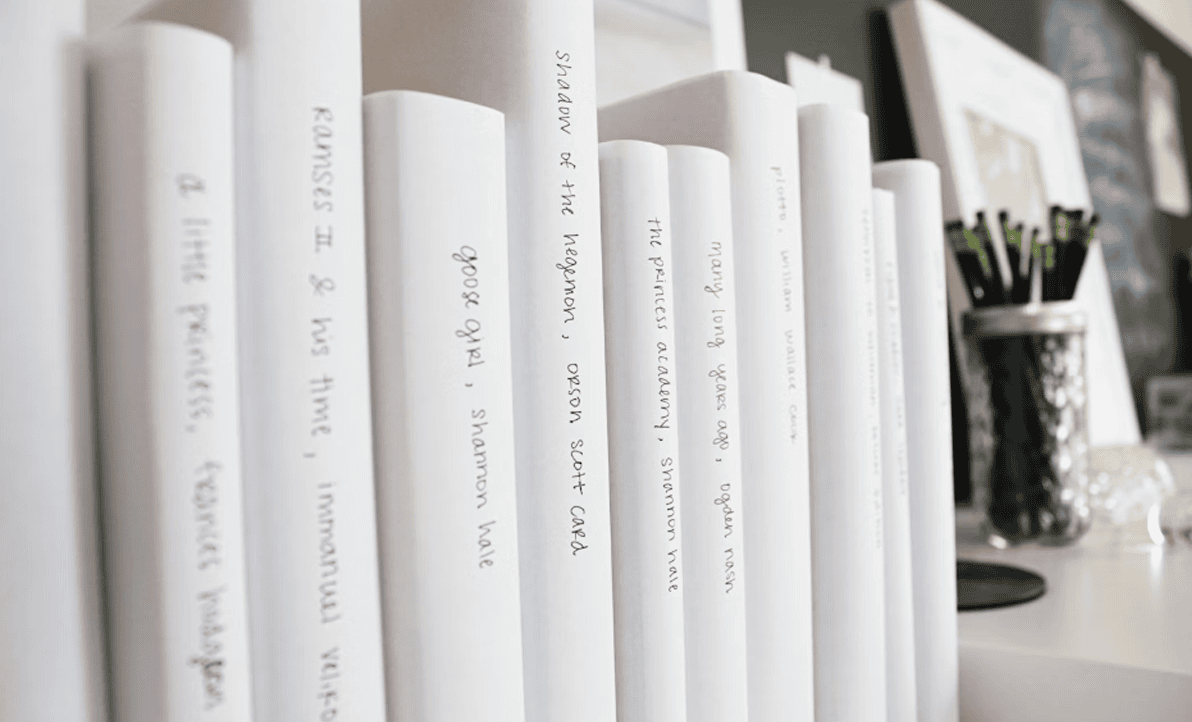 a little princess, frances hodgson
Ramses II & his time, immanuel veliko
goose girl, shannon hale
shadow of the hegemon, orson scott card
the princess academy, shannon hale
many long years ago, ogden nash
plotto, william wallace cook